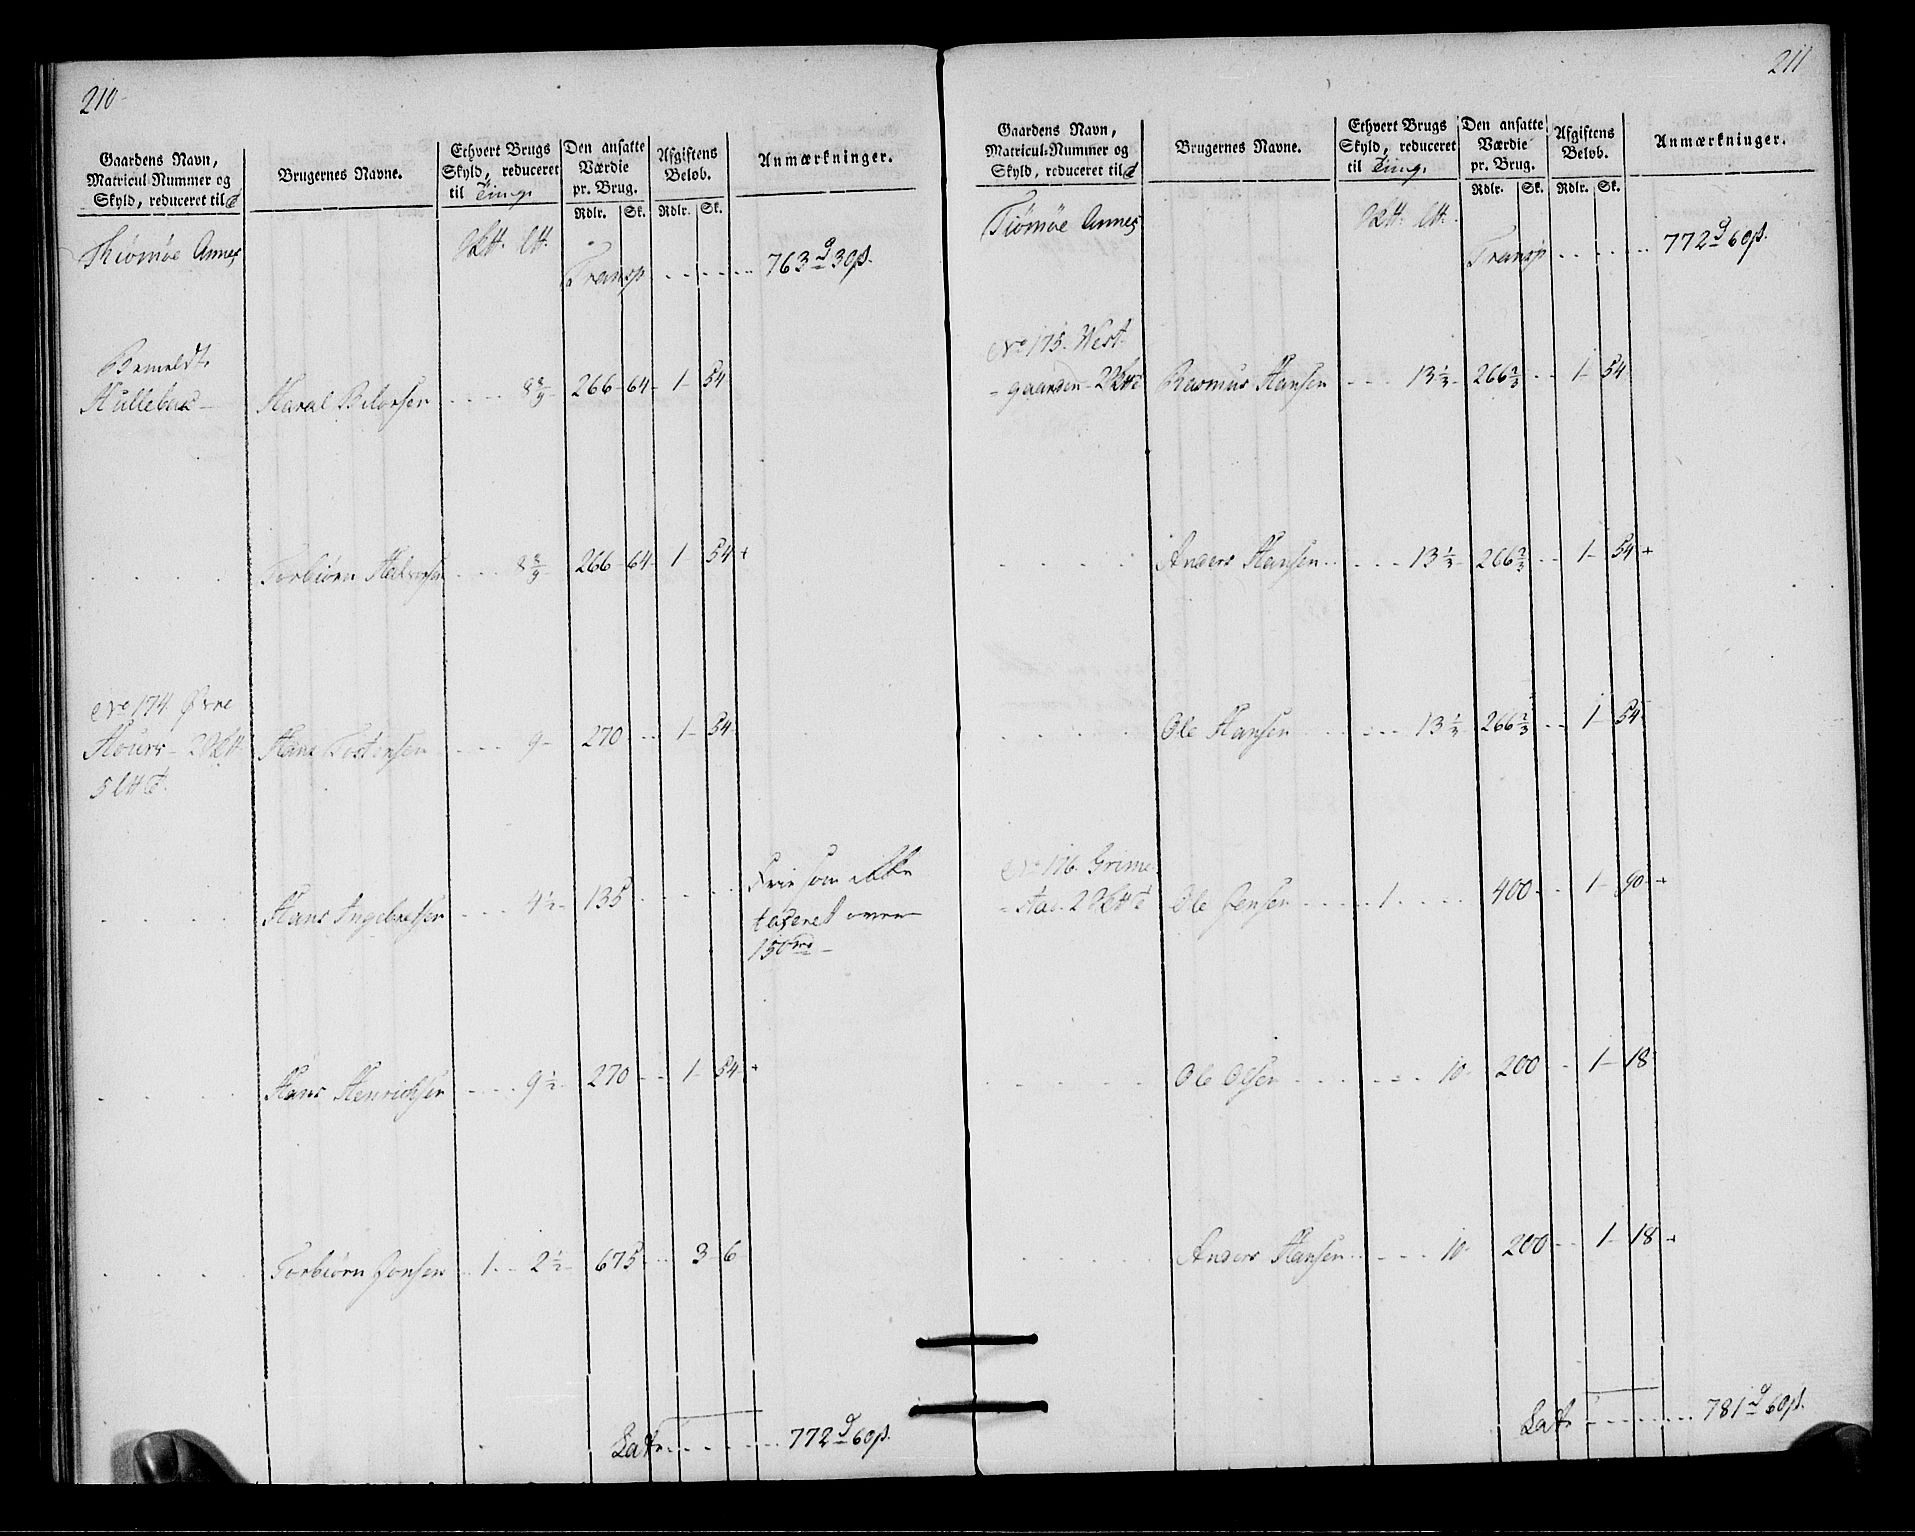 210
Gaardens Navn,
Matricul-Nummer og
Skyld, reduceret til
Brugernes Navne.
Ethvert Brugs
Skyld, reduceret
til Ting.
Den ansatte
Værdie
pr. Brug.
Rdlr. Sk.
Afgiftens
Beløb.
Rdlr. Sk.
Anmærkninger.
Tiømøe Annex
Transp ...... 763 d 30 ß.
Bemeldt,
Hulleback Haral Pedersen .... 8 8/9 266 - 64 - 1 - 54
Torbiørn Halvorsen ... 8 8/9 266 - 64 - 1 - 54 +
No 174 Øvre
Houers - 2 Hans Tostensen ... 9 - 270 .. 1 - 54
5
Hans Ingebretsen ... 4 1/2 - 135 .... Frie som ikke
taxeret over
150 rd -
Hans Henrichsen .... 9 1/2 - 270 - - 1 - 54 +
Torbiørn Jonsen .. 1 .. 2 1/2 - 675 ... 3 - 6
Lat ....... 772 d 60 ß.
211
Gaardens Navn,
Matricul-Nummer og
Skyld, reduceret til
Brugernes Navne.
Ethvert Brugs
Skyld, reduceret
til Ting.
Den ansatte
Værdie
pr. Brug.
Rdlr. Sk.
Afgiftens
Beløb.
Rdlr. Sk.
Anmærkninger.
Tiømøe Annex
Transp ...... 772 d 60 ß.
No 175. West-
gaarden - 2 Rasmus Hansen ... 13 1/3 - 266 2/3 .. 1 - 54
Anders Hansen .. ... 13 1/3 - 266 2/3 .. 1 - 54 +
Ole Hansen ...... 13 1/3 266 2/3 .. 1 - 54
No 176. Grime-
stad. 2 Ole Jensen ..... 1 .... 400 - 1 - 90 +
Ole Olsen ....... 10 - 200 .. 1 - 18
Anders Hansen ..... 10 - 200 .. 1 - 18 +
Lat ....... 781 d 60 ß.